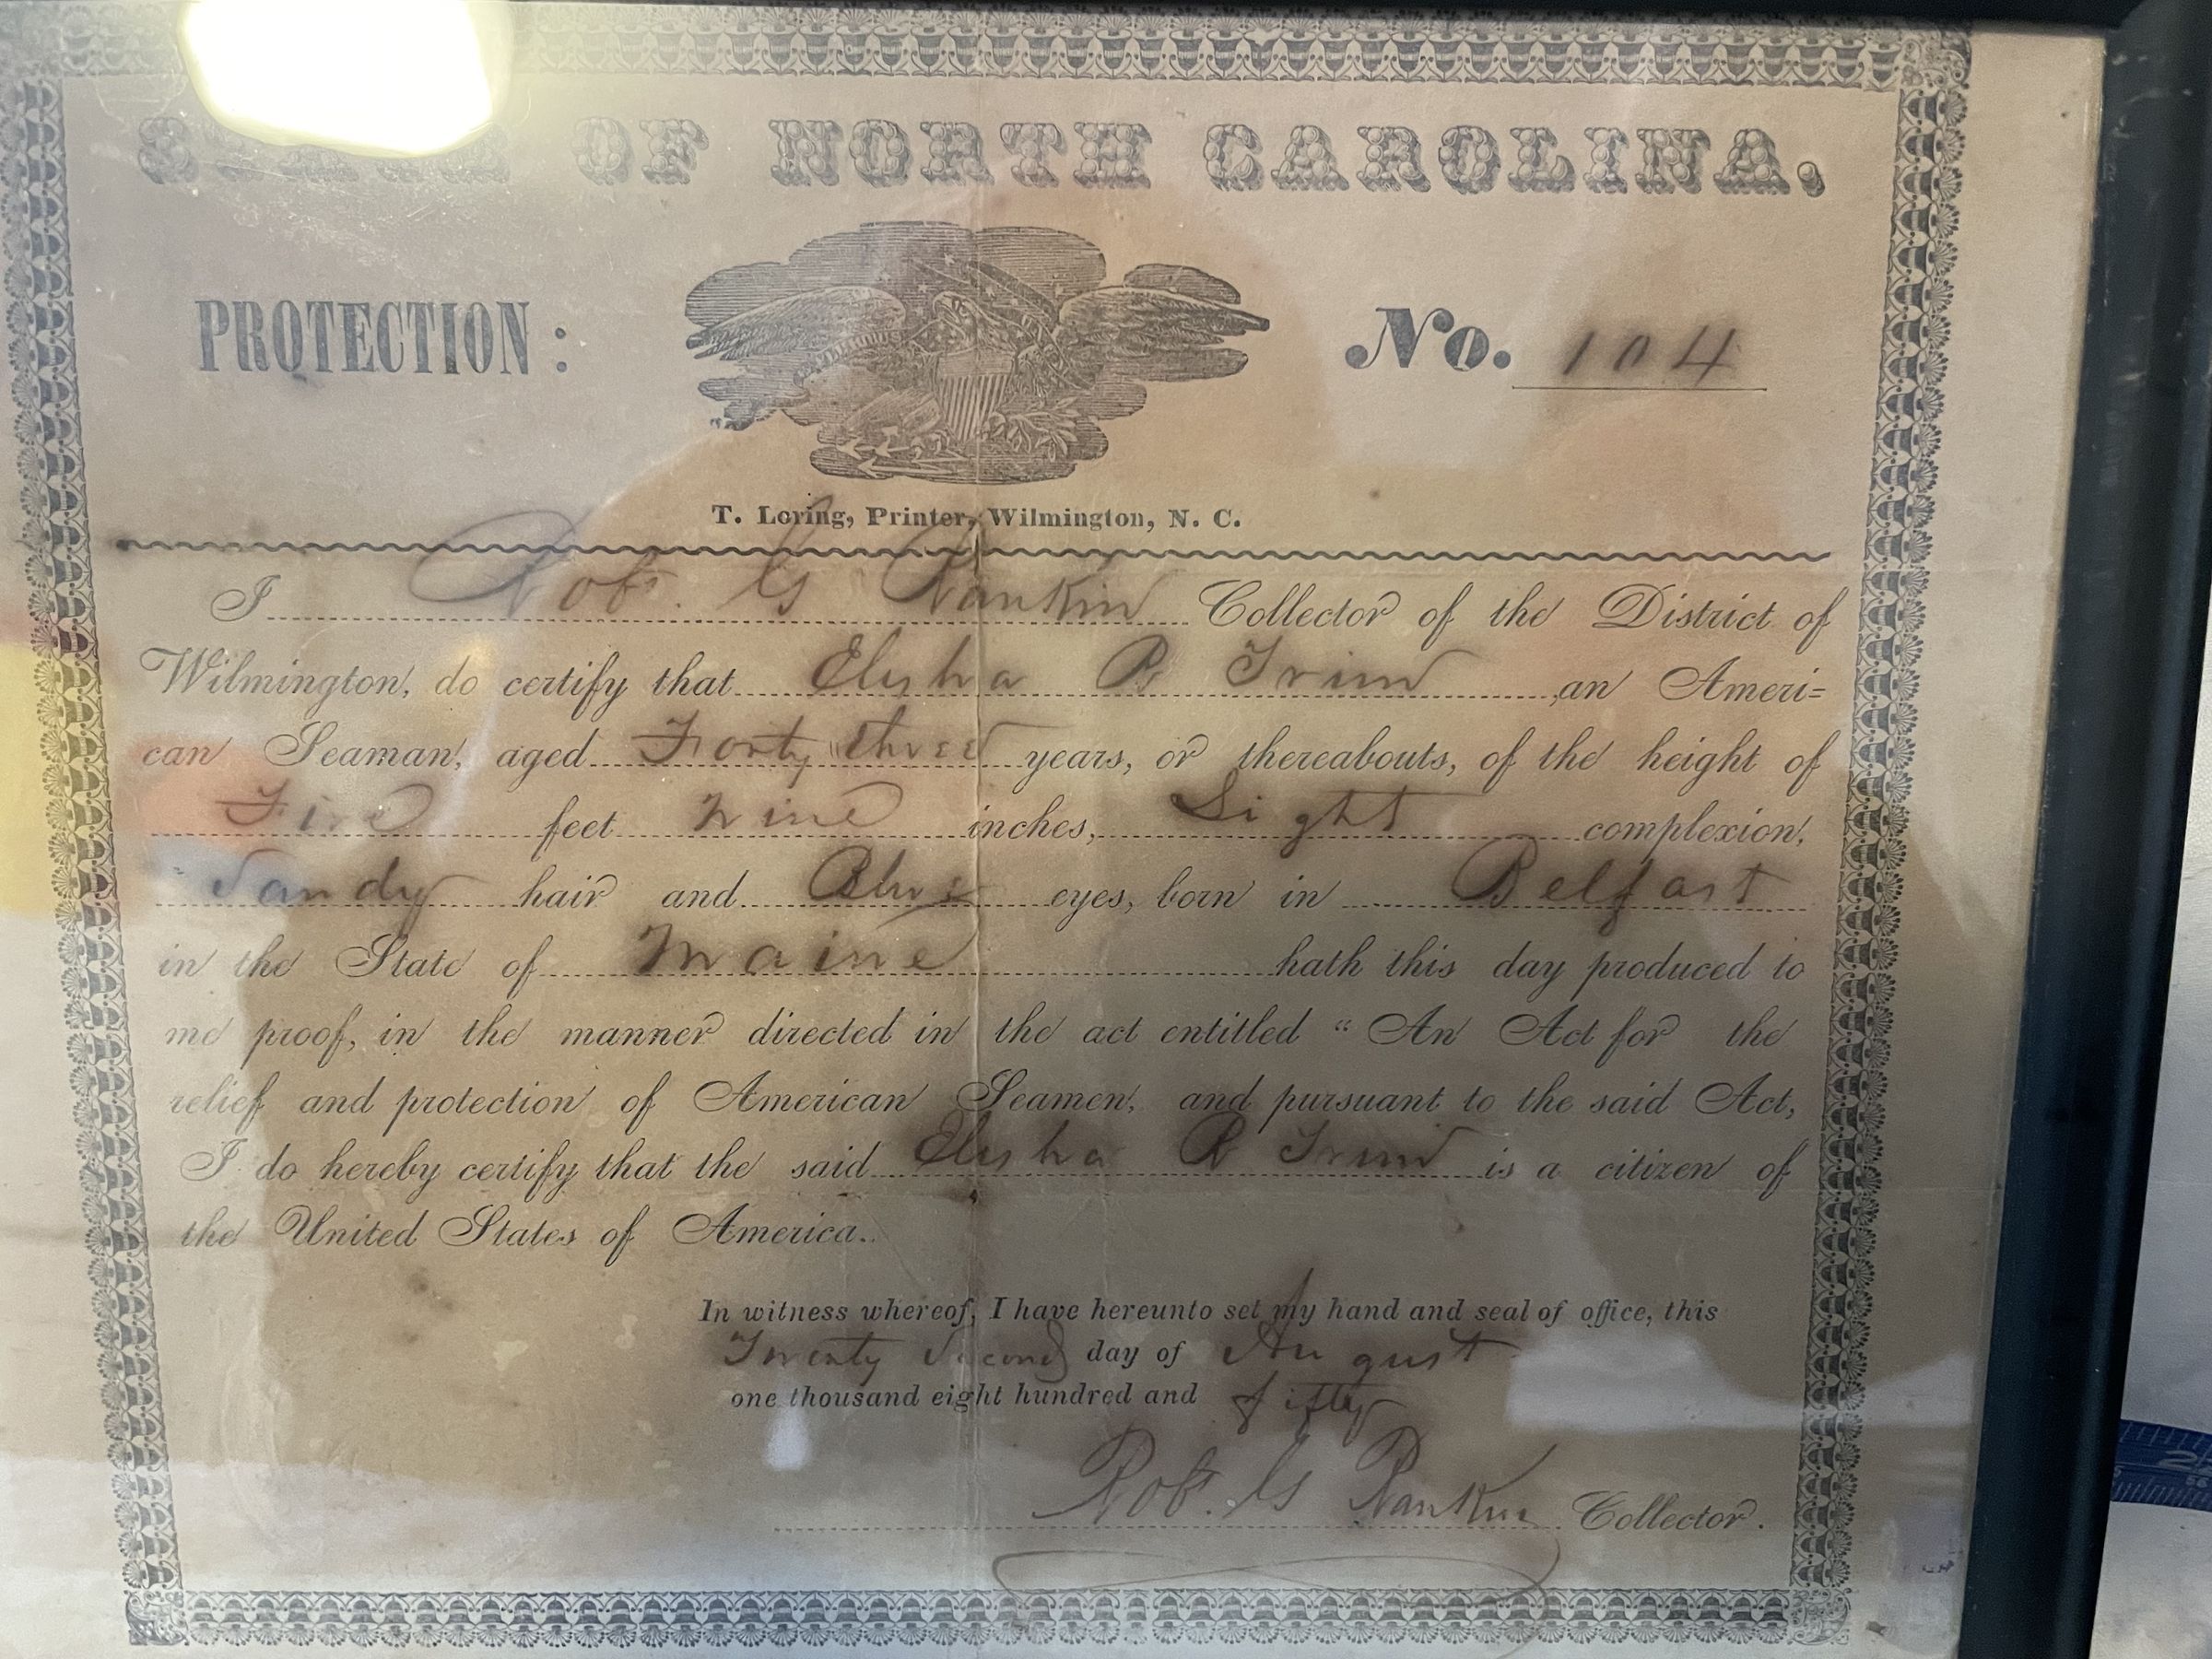 OF NORTH CAROLINA.
PROTECTION: No. 104
T. Loring, Printer, Wilmington, N. C.
I Robt. G Rankin Collector of the District of
Wilmington, do certify that Elisha R Trim an Ameri=
can Seaman, aged Forty three years, or thereabouts, of the height of
Five feet nine inches, Light complexion,
Sandy hair and Blue eyes, born in Belfast
in the State of Maine hath this day produced to
me proof, in the manner directed in the act entitled “An Act for the
relief and protection of American Seamen, and pursuant to the said Act,
I do hereby certify that the said Elisha R Trim is a citizen of
the United States of America.
In witness whereof, I have hereunto set my hand and seal of office, this
Twenty Second day of August
one thousand eight hundred and fifty
Robt. G Rankin Collector.